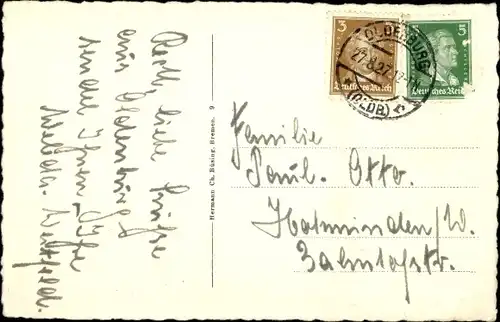 Recht liebe Grüße
aus Oldenburg
senden Ihnen Ihre
Hermann Ch. Büsing, Bremen. 9
3
Deutsches Reich
5
Deutsches Reich
OLDENBURG
27.8.27.
(OLDB)
Familie
Paul Otto.
Holzminden/W.